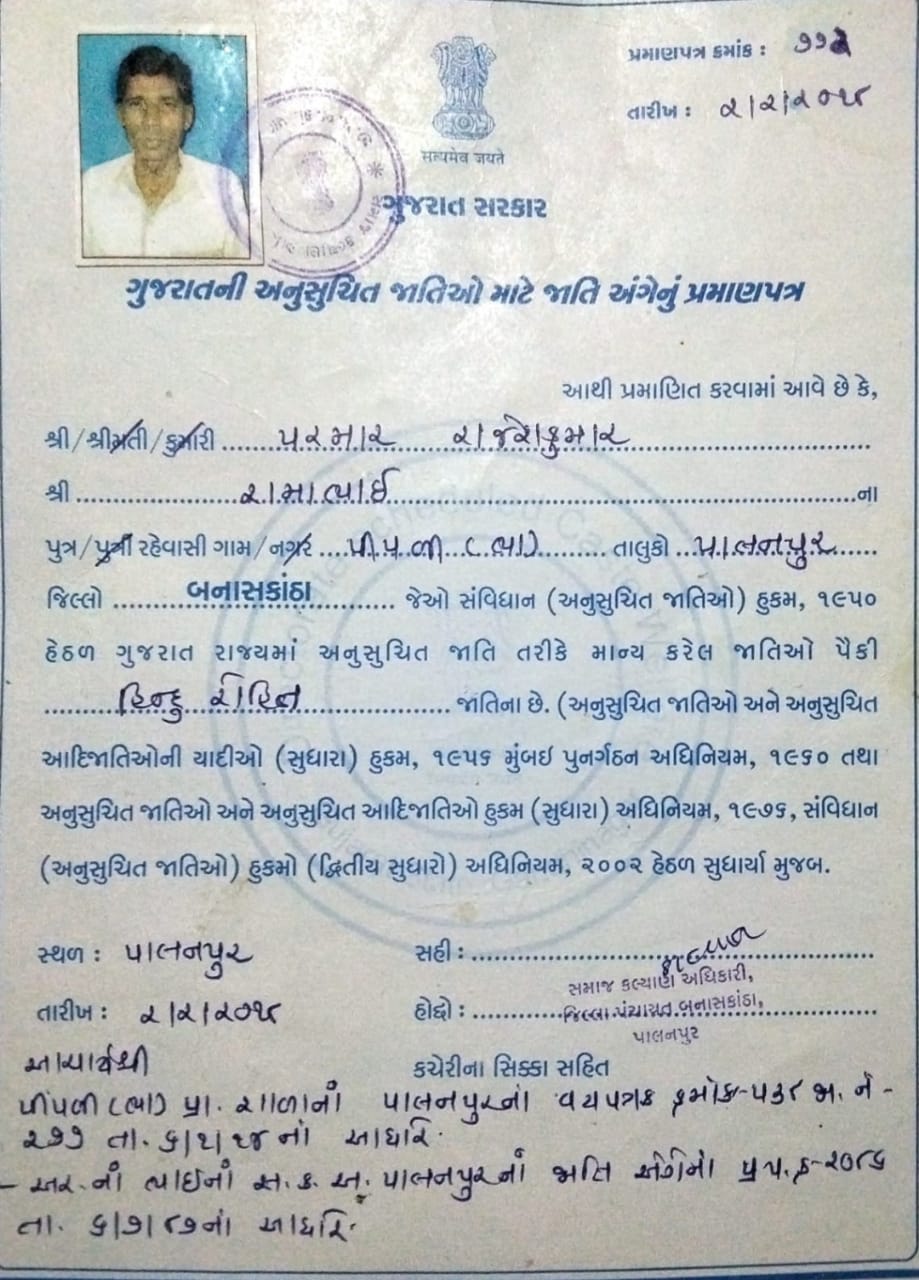 પ્રમાણપત્ર ક્રમાંક :
તારીખ : ૨/૨/૨૦૧૫
सत्यमेव जयते
ગુજરાત સરકાર
ગુજરાતની અનુસુચિત જાતિઓ માટે જાતિ અંગેનું પ્રમાણપત્ર
આથી પ્રમાણિત કરવામાં આવે છે કે,
શ્રી/શ્રીમતી/કુમારી ...... પરમાર રાજેશકુમાર
શ્રી ...... રામાભાઈ ...... ના
પુત્ર/પુત્રી રહેવાસી ગામ/નગર ... પીપળી (ભા) ...... તાલુકો ... પાલનપુર ......
જિલ્લો ...... બનાસકાંઠા ...... જેઓ સંવિધાન (અનુસુચિત જાતિઓ) હુકમ, ૧૯૫૦
હેઠળ ગુજરાત રાજ્યમાં અનુસુચિત જાતિ તરીકે માન્ય કરેલ જાતિઓ પૈકી
...... હિન્દુ રોહિત ...... જાતિના છે. (અનુસુચિત જાતિઓ અને અનુસુચિત
આદિજાતિઓની યાદીઓ (સુધારા) હુકમ, ૧૯૫૬ મુંબઇ પુનર્ગઠન અધિનિયમ, ૧૯૬૦ તથા
અનુસુચિત જાતિઓ અને અનુસુચિત આદિજાતિઓ હુકમ (સુધારા) અધિનિયમ, ૧૯૭૬, સંવિધાન
(અનુસુચિત જાતિઓ) હુકમો (દ્વિતીય સુધારો) અધિનિયમ, ૨૦૦૨ હેઠળ સુધાર્યા મુજબ.
સ્થળ : પાલનપુર
સહી :
તારીખ : ૨/૨/૨૦૧૫
હોદ્દો : સમાજ કલ્યાણ અધિકારી,
જિલ્લા પંચાયત બનાસકાંઠા,
પાલનપુર
કચેરીના સિક્કા સહિત
આચાર્યશ્રી
પીપળી (ભા) પ્રા. શાળાનાં પાલનપુરનાં વયપત્રક ક્રમાંક
તા. નાં આધારે.
- અર. નાં ભાઈનાં સ. ક. અ. પાલનપુરનાં જાતિ અંગેનાં પ્ર.પ.ક્ર
તા. નાં આધારે.